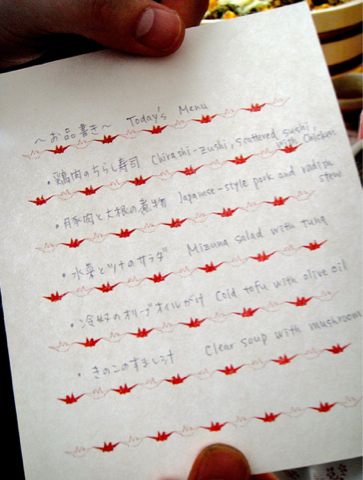 ～お品書き～ Today's Menu
・鶏肉のちらし寿司 Chirashi-zushi, scattered sushi with Chicken
・豚肉と大根の煮物 Japanese-style pork and radish stew
・水菜とツナのサラダ Mizuna salad with tuna
・冷奴のオリーブオイルがけ Cold tofu with olive oil
・きのこのすまし汁 Clear soup with mushroom